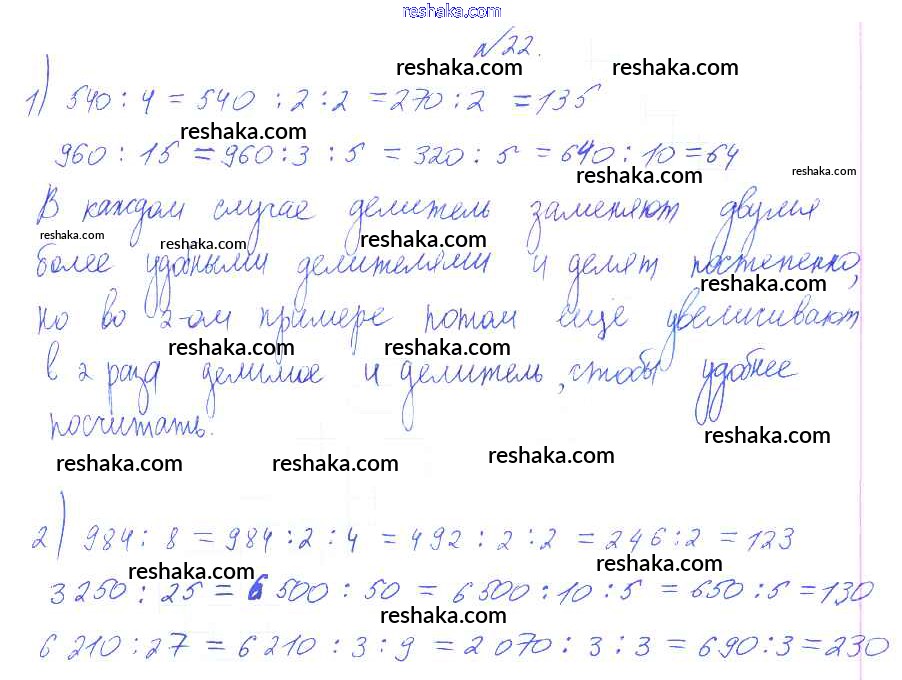 reshaka.com
№22.
reshaka.com reshaka.com
1) 540 : 4 = 540 : 2 : 2 = 270 : 2 = 135
reshaka.com reshaka.com
960 : 15 = 960 : 3 : 5 = 320 : 5 = 640 : 10 = 64
reshaka.com reshaka.com
В каждом случае делитель заменяют двумя
reshaka.com reshaka.com reshaka.com
более удобными делителями и делят постепенно,
reshaka.com
но во 2-ом примере потом еще увеличивают
reshaka.com reshaka.com
в 2 раза делимое и делитель, чтобы удобнее
посчитать.
reshaka.com reshaka.com reshaka.com reshaka.com
2) 984 : 8 = 984 : 2 : 4 = 492 : 2 : 2 = 246 : 2 = 123
reshaka.com reshaka.com
3 250 : 25 = 6 500 : 50 = 6 500 : 10 : 5 = 650 : 5 = 130
reshaka.com
6 210 : 27 = 6 210 : 3 : 9 = 2 070 : 3 : 3 = 690 : 3 = 230